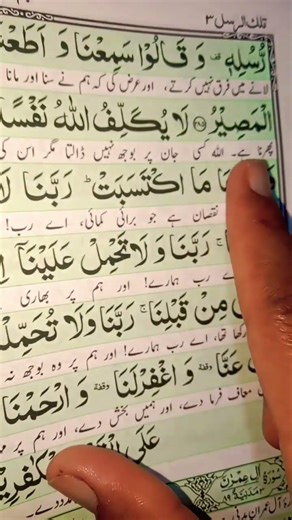 تلك الرسل ٣
رُّسُلِهٖ وَ قَالُوْا سَمِعْنَا وَ اَطَعْنَا
لانے میں فرق نہیں کرتے، اور عرض کی کہ ہم نے سنا اور مانا
الْمَصِيْرُ ﴿٢٨٥﴾ لَا يُكَلِّفُ اللّٰهُ نَفْسًا
پھرنا ہے۔ اللہ کسی جان پر بوجھ نہیں ڈالتا مگر اس کی
مَا اكْتَسَبَتْ ؕ رَبَّنَا لَا
نقصان ہے جو برائی کمائی، اے رب!
رَبَّنَا وَ لَا تَحْمِلْ عَلَيْنَاۤ
رب ہمارے! اور ہم پر بھاری
مِنْ قَبْلِنَا ۚ رَبَّنَا وَلَا تُحَمِّلْنَا
رکھا تھا، اے رب ہمارے! اور ہم پر وہ بوجھ نہ
عَنَّا وقفة وَ اغْفِرْلَنَا وقفة وَ ارْحَمْنَا
معاف فرما دے، اور ہمیں بخش دے، اور ہم پر
عَلَى الْكٰفِرِيْنَ
مدد دے۔
سُوْرَةُ اٰلِ عِمْرٰنَ